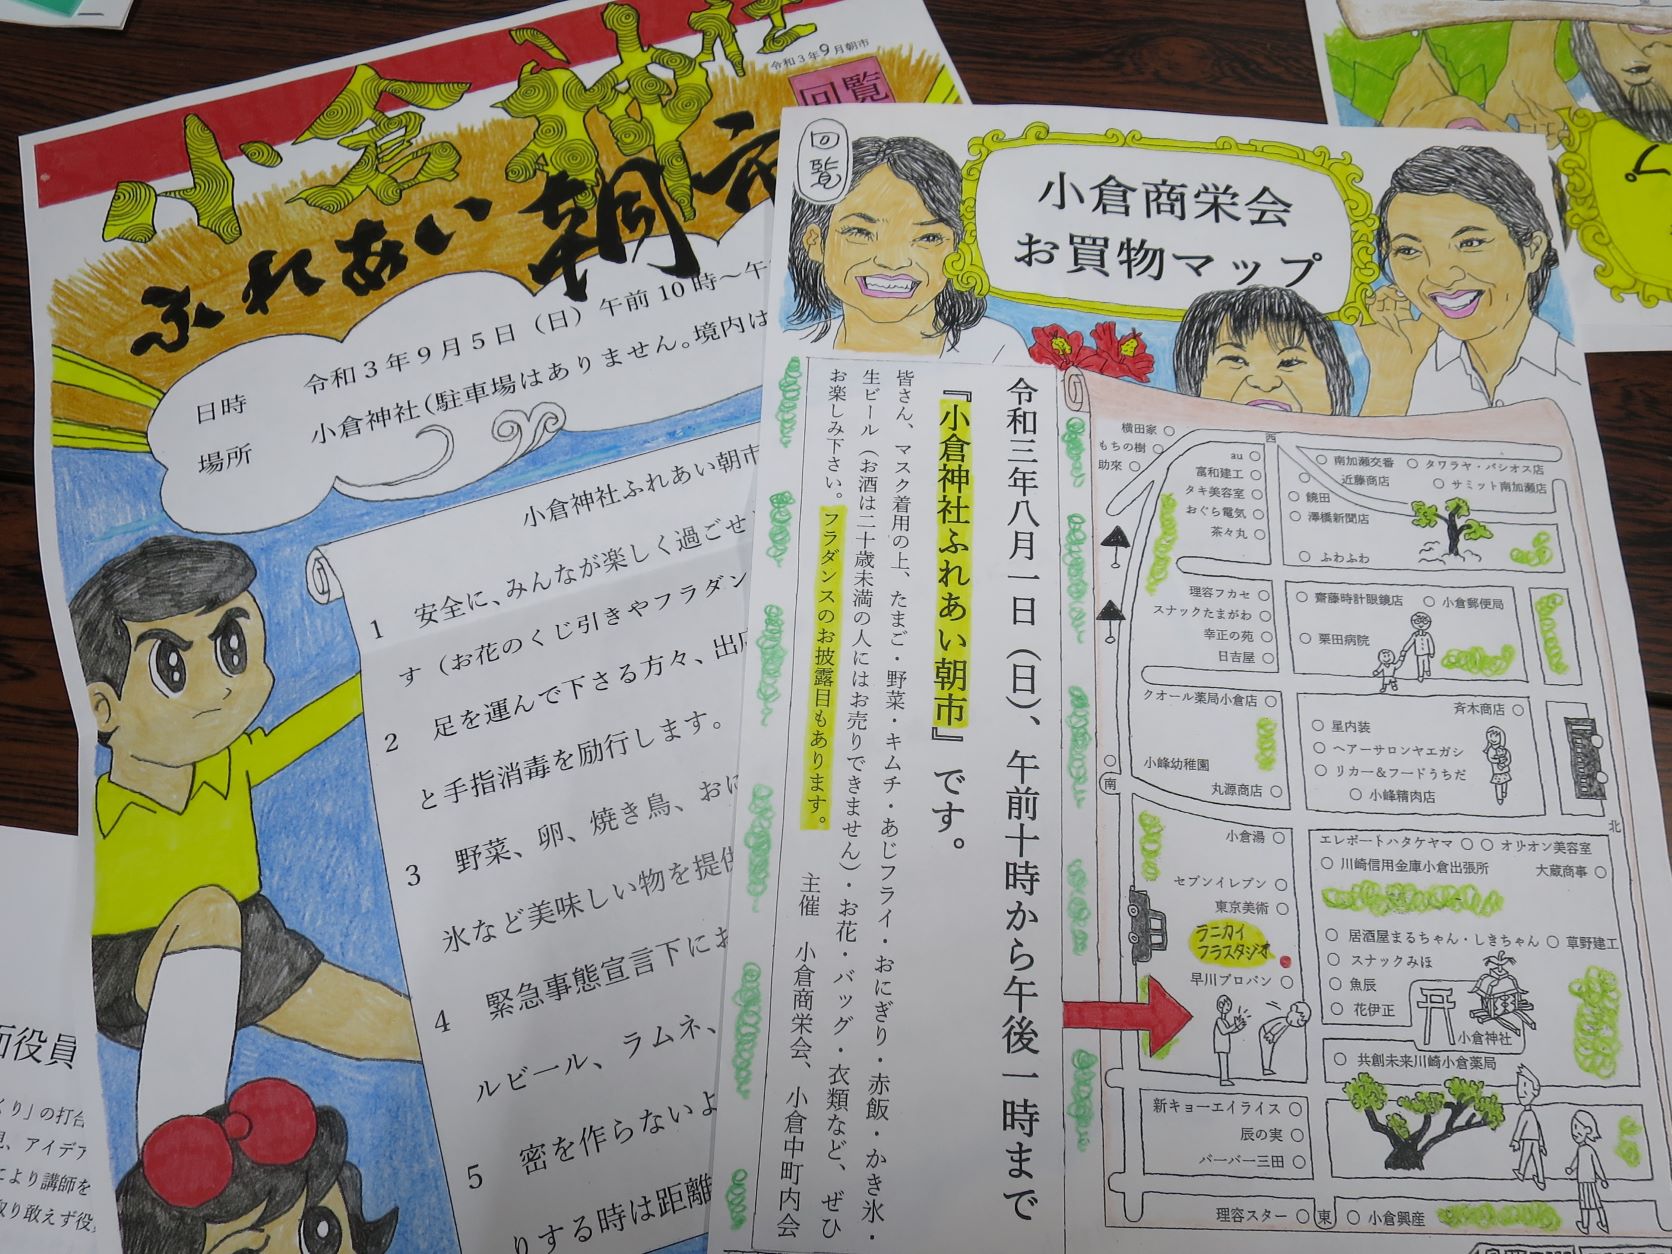 小倉神社
ふれあい朝市
令和3年9月朝市
回覧
日時 令和3年9月5日（日）午前10時～午
場所 小倉神社（駐車場はありません。境内は
小倉神社ふれあい朝市
1 安全に、みんなが楽しく過ごせ
す（お花のくじ引きやフラダン
足を運んで下さる方々、出店
2
と手指消毒を励行します。
3 野菜、卵、焼き鳥、おに
氷など美味しい物を提供
4 緊急事態宣言下にお
ルビール、ラムネ、
5 密を作らないよ
りする時は距離
回覧
小倉商栄会
お買物マップ
令和三年八月一日（日）、午前十時から午後一時まで
『小倉神社ふれあい朝市』です。
皆さん、マスク着用の上、たまご・野菜・キムチ・あじフライ・おにぎり・赤飯・かき氷・
生ビール（お酒は二十歳未満の人にはお売りできません）・お花・バッグ・衣類など、ぜひ
お楽しみ下さい。フラダンスのお披露目もあります。
主催 小倉商栄会、小倉中町内会
西
横田家
もちの樹
助來
au
富和建工
タキ美容室
おぐら電気
茶々丸
南加瀬交番
タワラヤ・パシオス店
近藤商店
サミット南加瀬店
鏡田
澤橋新聞店
ふわふわ
理容フカセ
スナックたまがわ
幸正の苑
日吉屋
齋藤時計眼鏡店
小倉郵便局
栗田病院
クオール薬局小倉店
小峰幼稚園
丸源商店
斉木商店
星内装
ヘアーサロンヤエガシ
リカー＆フードうちだ
小峰精肉店
南
北
小倉湯
セブンイレブン
東京美術
ラニカイ
フラスタジオ
早川プロパン
エレポートハタケヤマ
オリオン美容室
川崎信用金庫小倉出張所
大蔵商事
居酒屋まるちゃん・しきちゃん
草野建工
スナックみほ
魚辰
花伊正
小倉神社
共創未来川崎小倉薬局
新キョーエイライス
辰の実
バーバー三田
理容スター
東
小倉興産
面役員
くり」の打合
見、アイデア
により講師を
取り敢えず役